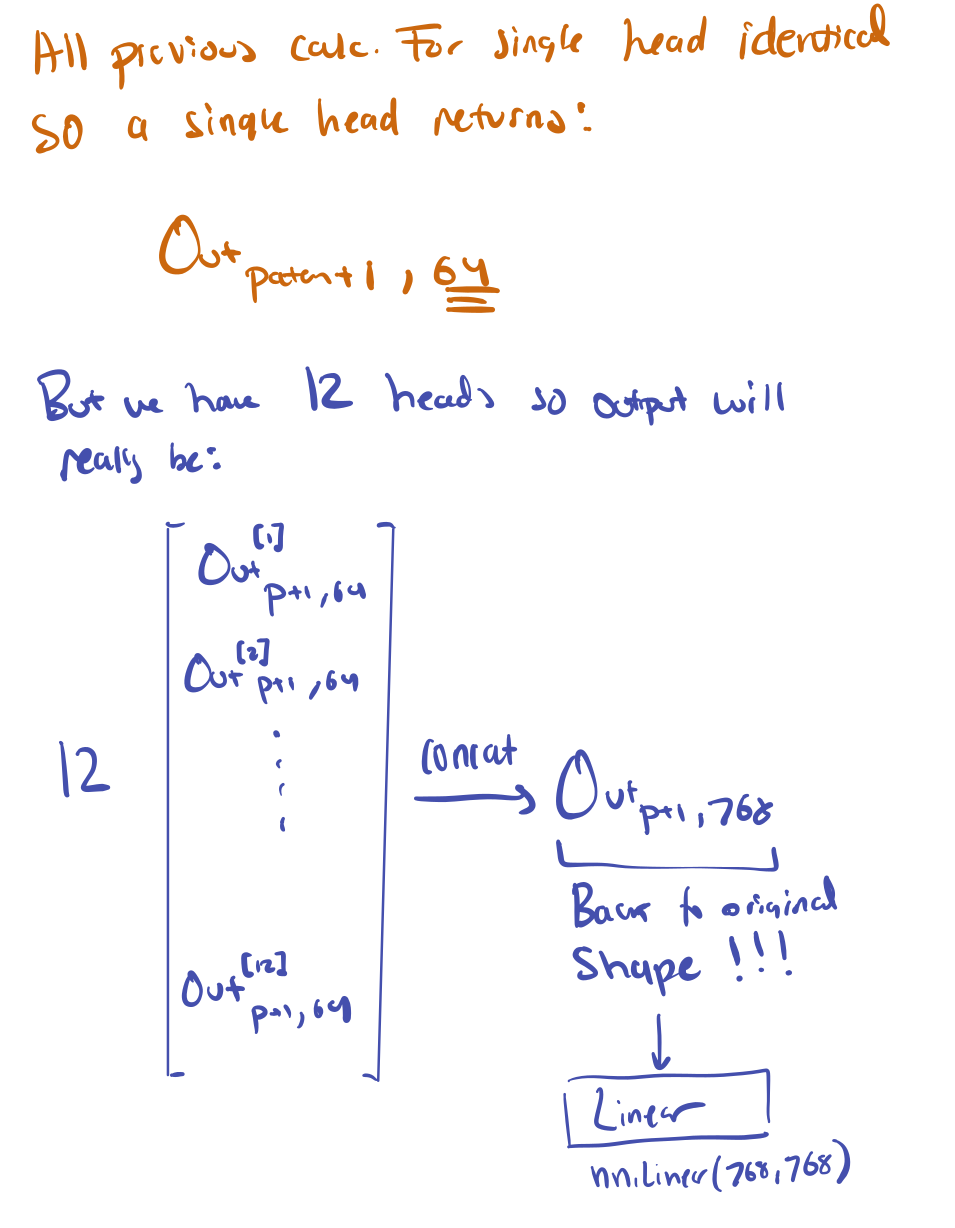 All previous calc. For single head identical
so a single head returns:
Out patent+1, 64
But we have 12 heads so output will
really be:
Out [1] p+1, 64
Out [2] p+1, 64
12
concat
Out p+1, 768
Back to original
Shape !!!
Out [12] p+1, 64
Linear
nn.Linear(768, 768)